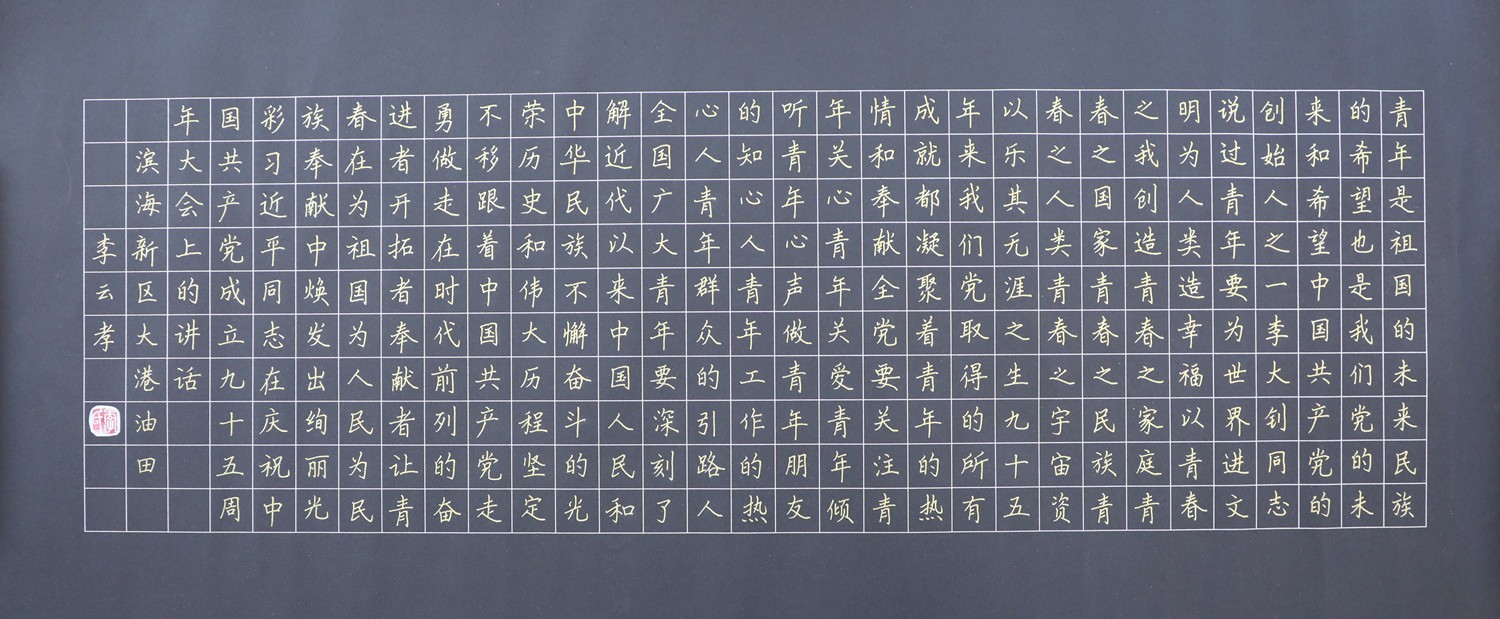 青年是祖国的未来民族
的希望也是我们党的未
来和希望中国共产党的
创始人之一李大钊同志
说过青年要为世界进文
明为人类造幸福以青春
之我创造青春之家庭青
春之国家青春之民族青
春之人类青春之宇宙资
以乐其无涯之生九十五
年来我们党取得的所有
成就都凝聚着青年的热
情和奉献全党要关注青
年关心青年关爱青年倾
听青年心声做青年朋友
的知心人青年工作的热
心人青年群众的引路人
全国广大青年要深刻了
解近代以来中国人民和
中华民族不懈奋斗的光
荣历史和伟大历程坚定
不移跟着中国共产党走
勇做走在时代前列的奋
进者开拓者奉献者让青
春在为祖国为人民为民
族奉献中焕发出绚丽光
彩习近平同志在庆祝中
国共产党成立九十五周
年大会上的讲话
滨海新区大港油田
李云孝